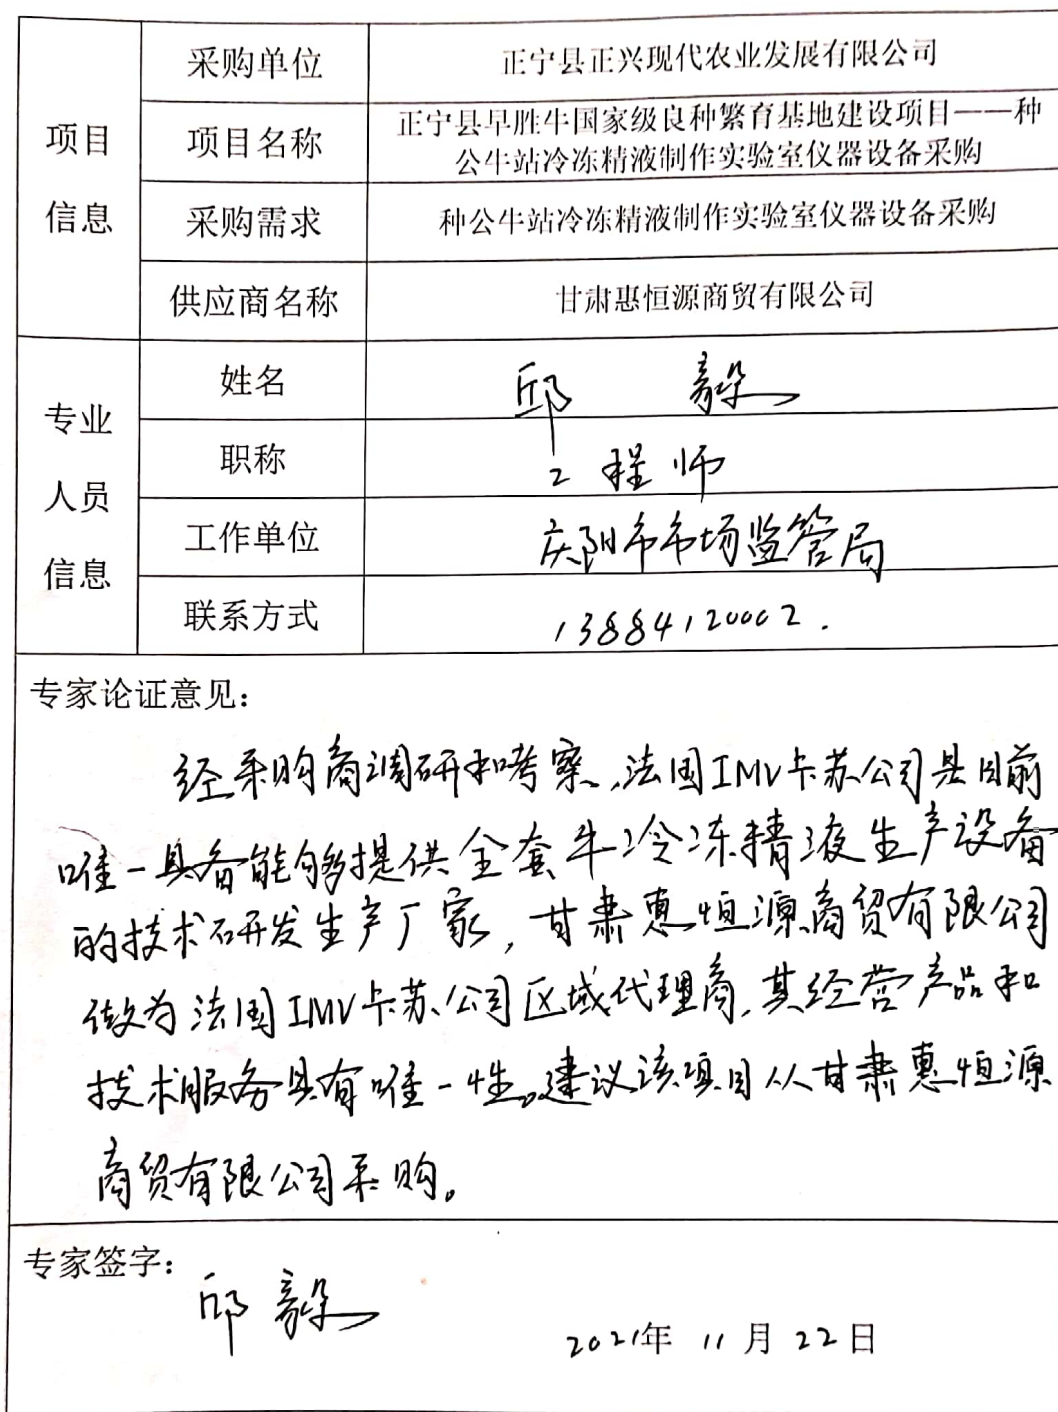 项目
信息
采购单位
正宁县正兴现代农业发展有限公司
项目名称
正宁县早胜牛国家级良种繁育基地建设项目——种
公牛站冷冻精液制作实验室仪器设备采购
采购需求
种公牛站冷冻精液制作实验室仪器设备采购
供应商名称
甘肃惠恒源商贸有限公司
专业
人员
信息
姓名
邱 毅
职称
工程师
工作单位
庆阳市市场监管局
联系方式
13884120002.
专家论证意见：
经采购商调研和考察，法国IMV卡苏公司是目前
唯一具备能够提供全套牛冷冻精液生产设备
的技术研发生产厂家，甘肃惠恒源商贸有限公司
做为法国IMV卡苏公司区域代理商，其经营产品和
技术服务具有唯一性。建议该项目从甘肃惠恒源
商贸有限公司采购。
专家签字：
邱毅
2021年 11 月 22日